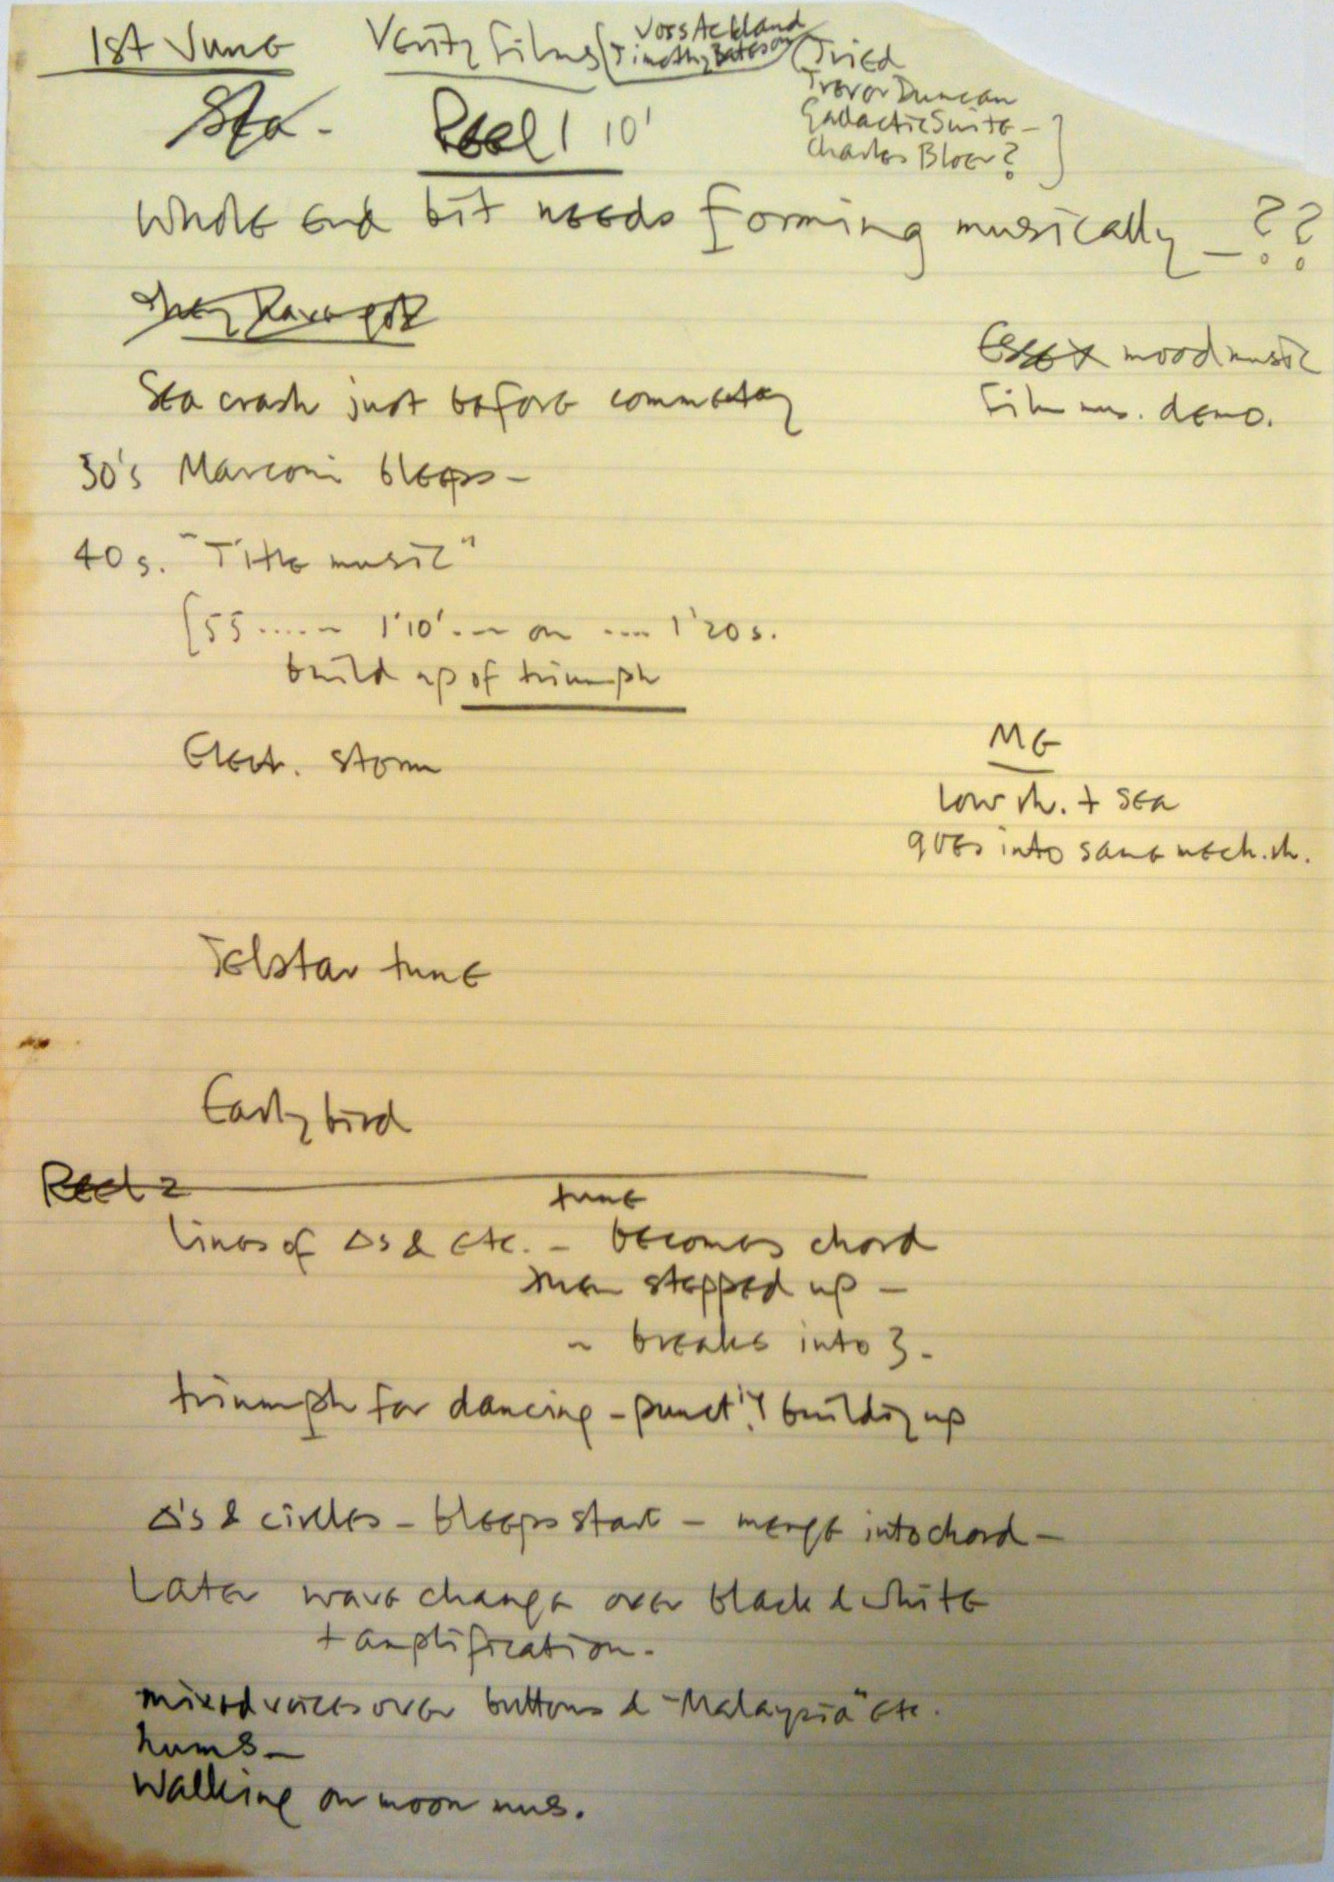 1st June Verity Films { Joss Ackland
Timothy Bateson
(Tried
Trevor Duncan
Galactic Suite –
Charles Bloer? ]
Sea – Reel 1 10'
Whole end bit needs forming musically – ??
They have got
Essex mood music
Film mus. demo.
Sea crash just before commentary
30's Marconi bleeps –
40s. "Title music"
[55 ..... – 1'10'. – – on .... 1'20s.
build up of triumph
Elect. storm
ME
low rh. + sea
goes into same mech. rh.
Telstar tune
Early bird
Reel 2
tune
lines of Δs & etc. – becomes chord
then stepped up –
– breaks into 3.
triumph for dancing – punct'y building up
Δ's & circles – bleeps start – merge into chord –
Later wave change over black & white
+ amplification.
mixed voices over buttons & "Malaysia" etc.
hums –
Walking on moon mus.